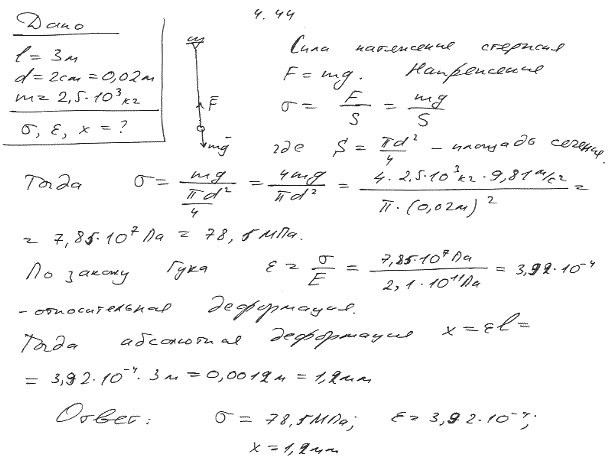 4.44
Дано
l = 3м
d = 2см = 0,02м
m = 2,5·10³кг
σ, ε, x = ?
m
F
mg
Сила натяжение стержня
F = mg. Напряжение
σ = F/S = mg/S
где S = πd²/4 - площадь сечения.
Тогда σ = mg/(πd²/4) = 4mg/πd² = 4·2,5·10³кг·9,81м/с²/π·(0,02м)² =
= 7,85·10⁷Па = 78,5МПа.
По закону Гука ε = σ/E = 7,85·10⁷Па/2,1·10¹¹Па = 3,92·10⁻⁴
- относительная деформация.
Тогда абсолютная деформация x = εl =
= 3,92·10⁻⁴·3м = 0,0012м = 1,2мм
Ответ: σ = 78,5МПа; ε = 3,92·10⁻⁴;
x = 1,2мм